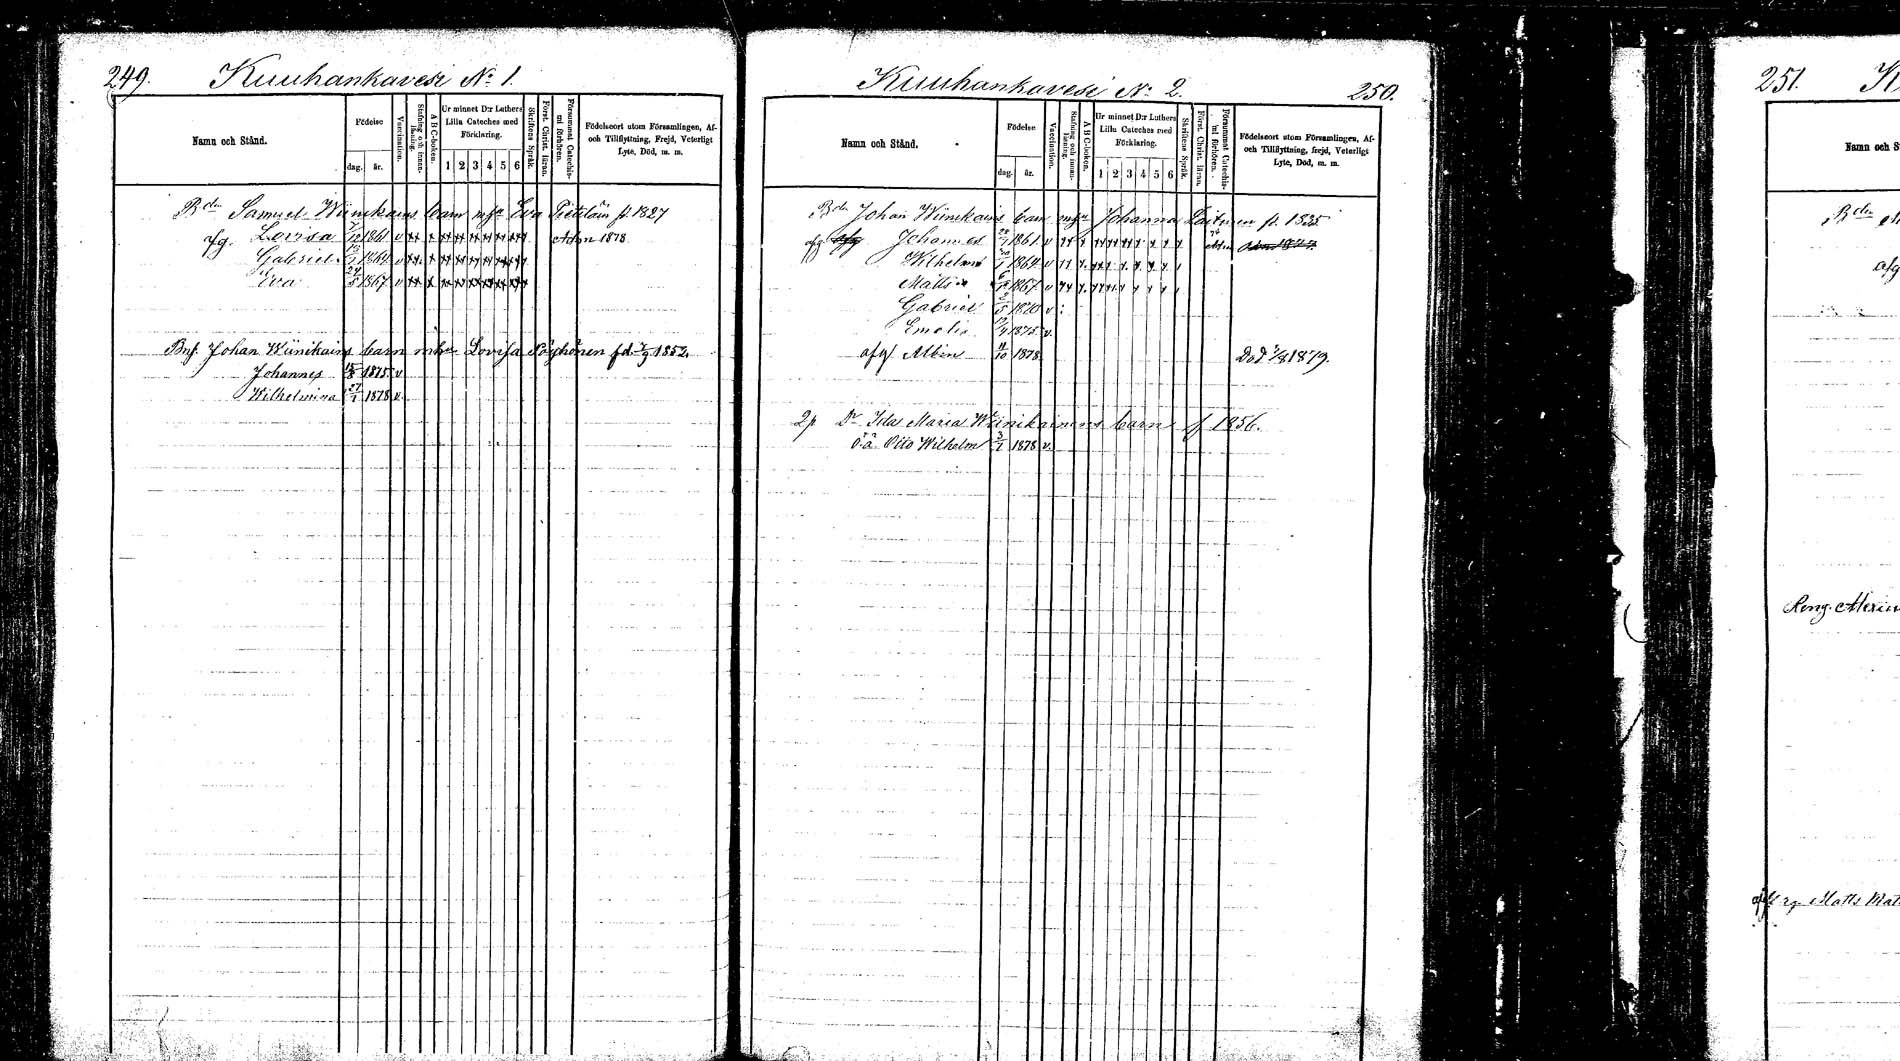 249. Kuuhankavesi No 1.
Namn och Stånd.
Födelse
dag. år.
Vaccination.
Stafning och innan-
läsning.
A B C-boken.
Ur minnet D:r Luthers
Lilla Cateches med
Förklaring.
1 2 3 4 5 6
Skriftens Språk.
Först. Christ. läran.
Försummat Catechis-
mi förhören.
Födelseort utom Församlingen, Af-
och Tillflyttning, Frejd, Veterligt
Lyte, Död, m. m.
Bdn Samuel Wiinikains barn m/h Eva Pietiläin f. 1827
fg. Lovisa 1861 v Adm 1878
Gabriel 1864 v
Eva 24/5 1867 v
Bns Johan Wiinikains barn mhu Lovisa Pöyhönen fd 1852.
Johannes 1875 v
Wilhelmina 27/1 1878 v.
Kuuhankavesi No 2. 250.
Namn och Stånd.
Födelse
dag. år.
Vaccination.
Stafning och innan-
läsning.
A B C-boken.
Ur minnet D:r Luthers
Lilla Cateches med
Förklaring.
1 2 3 4 5 6
Skriftens Språk.
Först. Christ. läran.
Försummat Catechis-
mi förhören.
Födelseort utom Församlingen, Af-
och Tillflyttning, frejd, Veterligt
Lyte, Död, m. m.
Bdn Johan Wiinikains barn m/h Johanna Laitinen f. 1835
afg afg Johannes 1861 v Adm
Wilhelm 1864 v
Matts 1867 v
Gabriel 1870 v
Emelie 1875 v.
afg/ Albin 11/10 1878 Död 1879.
2p Dr Ida Maria Wiinikainens barn f 1856.
o.ä. Otto Wilhelm 3/1 1878 v.
251. K
Namn och S
Bdn
afg
Matts Mat